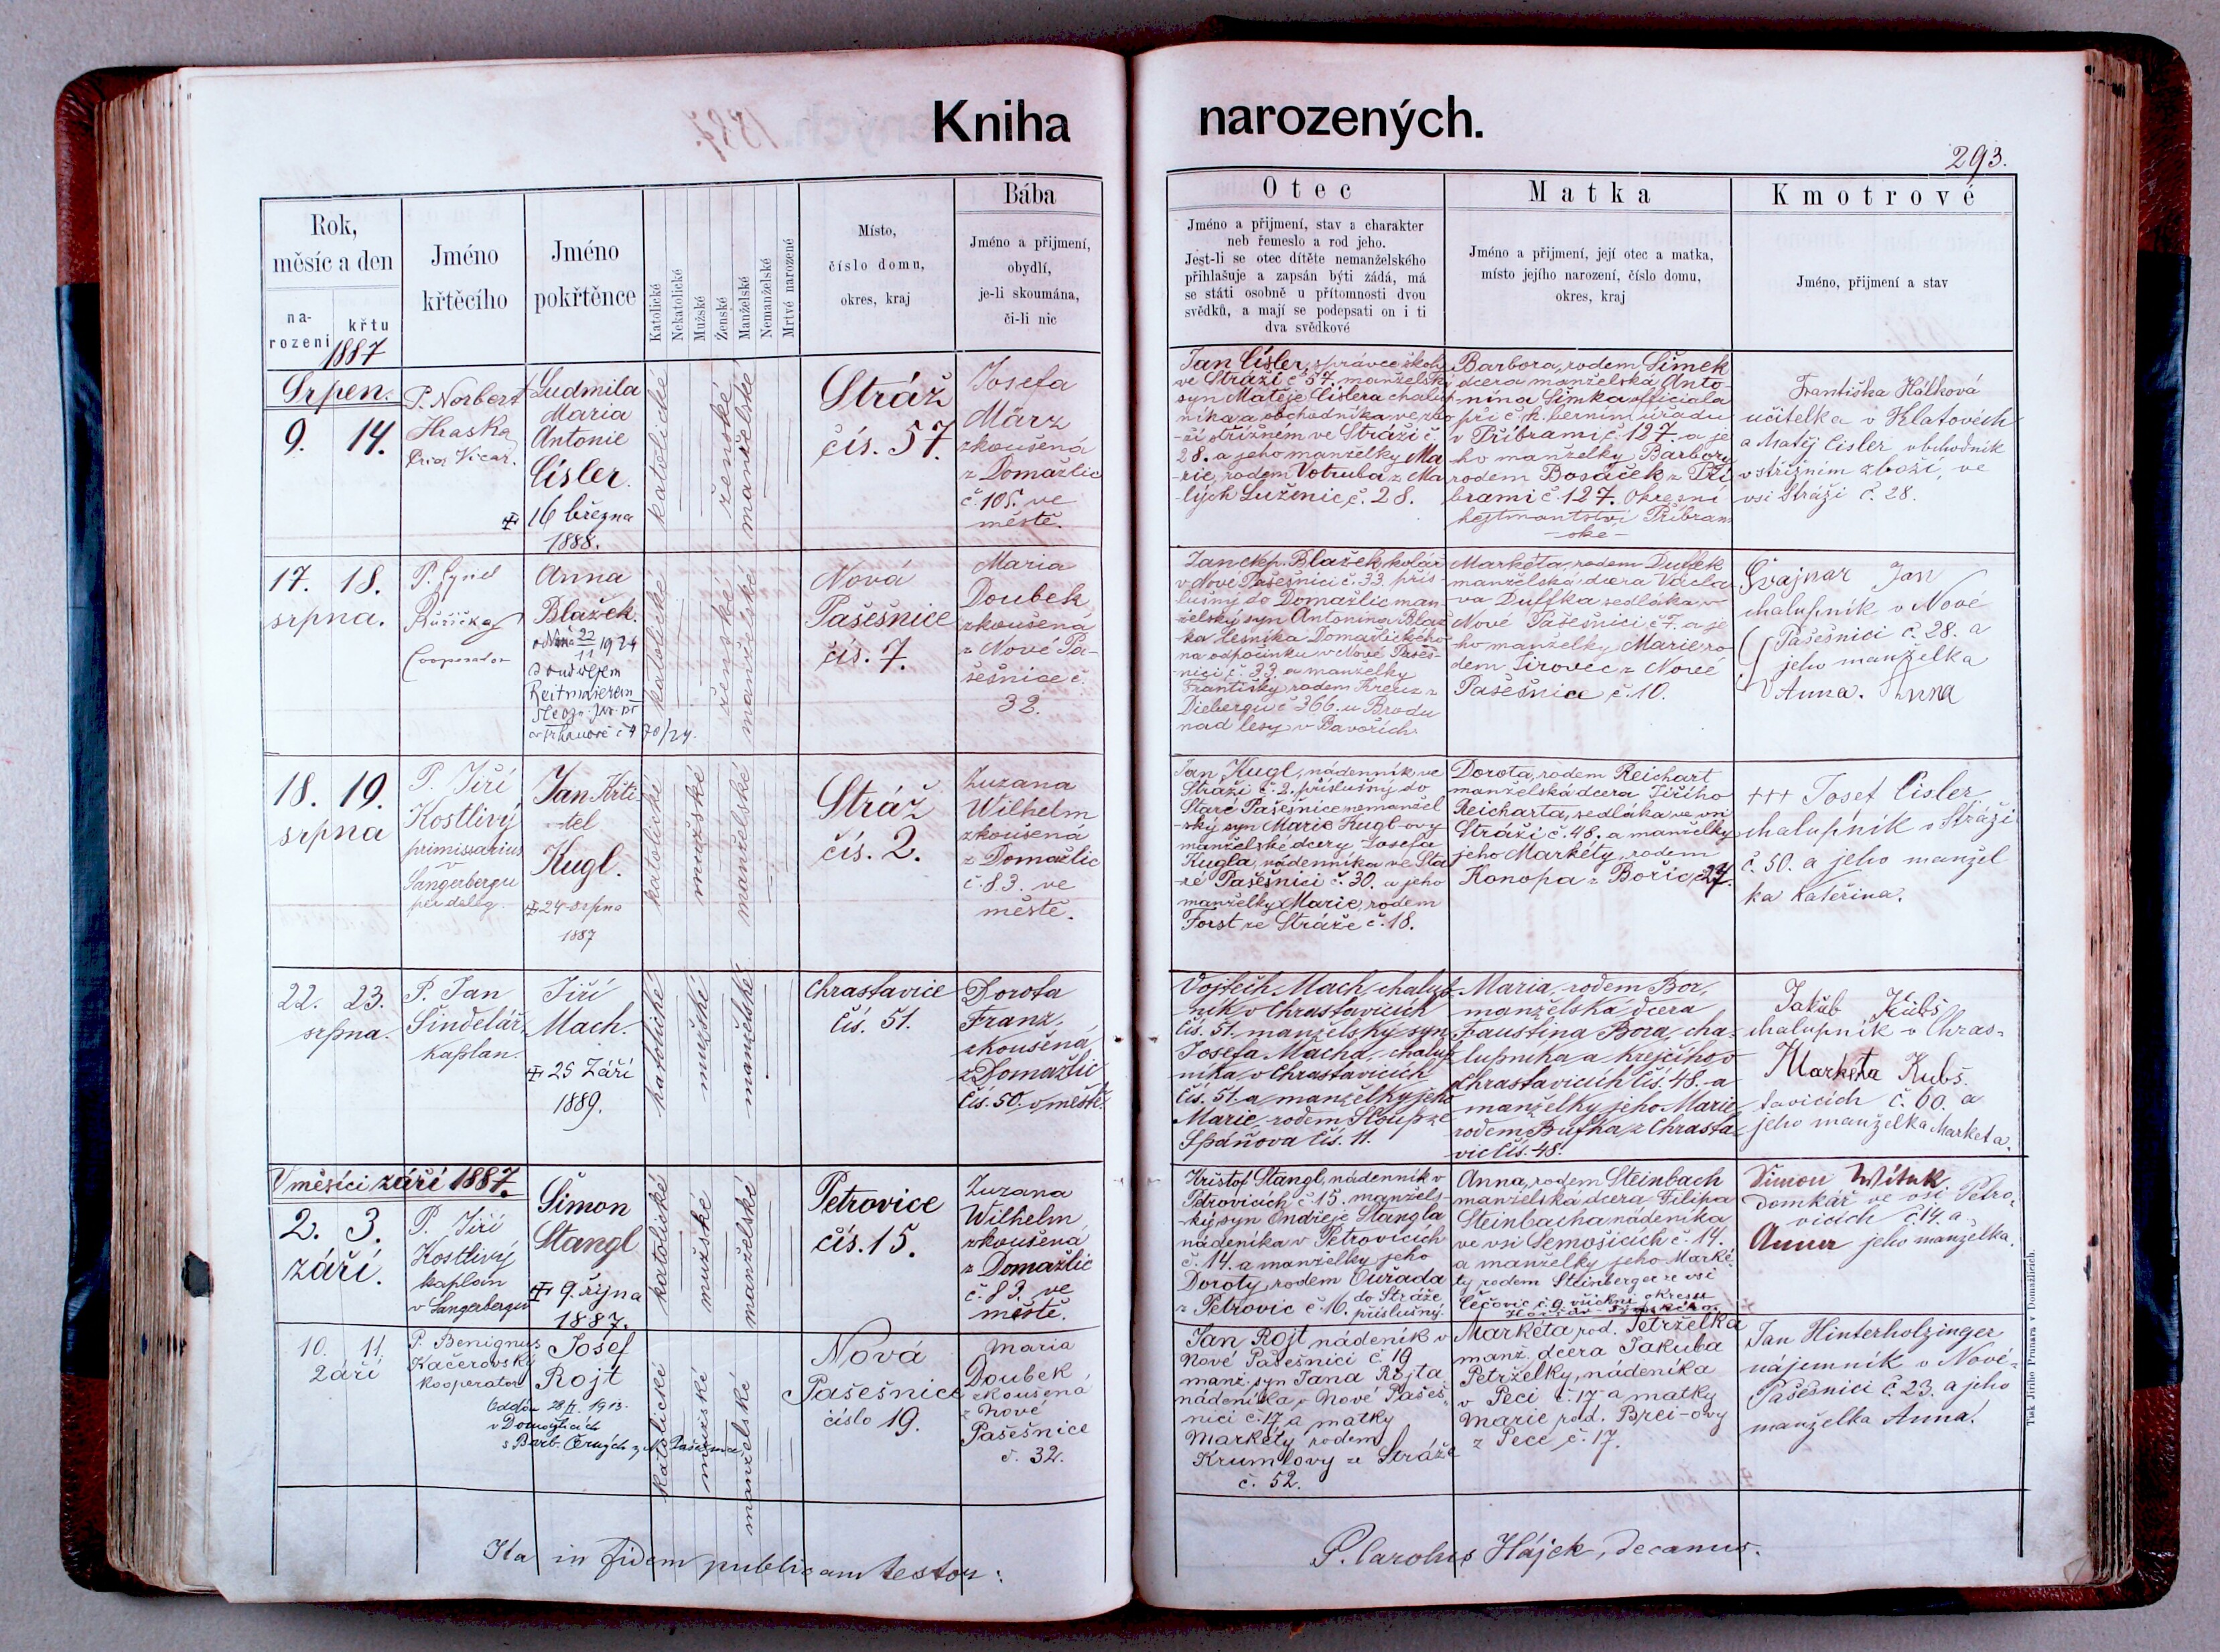 Kniha narozených.
293.
Rok,
měsíc a den
na-
rození
křtu
1887
Jméno
křtěcího
Jméno
pokřtěnce
Katolické
Nekatolické
Mužské
Ženské
Manželské
Nemanželské
Mrtvé narozené
Místo,
číslo domu,
okres, kraj
Bába
Jméno a přijmení,
obydlí,
je-li skoumána,
či-li nic
Otec
Jméno a přijmení, stav a charakter
neb řemeslo a rod jeho.
Jest-li se otec dítěte nemanželského
přihlašuje a zapsán býti žádá, má
se státi osobně u přítomnosti dvou
svědků, a mají se podepsati on i ti
dva svědkové
Matka
Jméno a přijmení, její otec a matka,
místo jejího narození, číslo domu,
okres, kraj
Kmotrové
Jméno, přijmení a stav
Srpen.
9. 14.
P. Norbert
Hraska
Ludmila
Maria
Antonie
Císler.
16 března
1888.
katolické
ženské
manželské
Stráž
čís. 57.
Josefa
März
zkoušená
z Domažlic
č. 105. ve
městě.
Jan Císler, správce školy
ve Stráži č 57, manželský
syn Matěje Císlera chalup-
níka a obchodníka ve zbo
-ží střižném ve Stráži č.
28. a jeho manželky Ma
-rie, rodem Votruba z Ma
-lých Luženic, č. 28.
Barbora, rodem Šimek
dcera manželská Anto-
-nína Šimka officiala
při c. k. berním úřadu
v Příbrami č. 127. a je
-ho manželky Barbory
rodem Bosáček z Pří
brami č. 127. Okresní
hejtmantství Příbram
-ské-
Františka Hálková
učitelka v Klatovech
a Matěj Cisler obchodník
v střižním zboží, ve
vsi Stráži č. 28.
17. 18.
srpna.
P. Cyril
Růžička
Cooperator
Anna
Blažek.
22/11 1924
s Rudolfem
Reitmaierem
katolické
ženské
manželské
Nová
Pasešnice
čís. 7.
Maria
Doubek
zkoušená
z Nové Pa-
sešnice č.
32.
Jan Blažek, kolář
v Nové Pasešnici č. 33. přís
lušný do Domažlic man
-želský syn Antonína Blaž
ka lesníka Domažlického
na odpočinku v Nové Paseš-
nici č. 33. a manželky
Františky rodem Kreuz z
Diebergu č 366. u Brodu
nad lesy v Bavořích.
Markéta, rodem Duffek
manželská dcera Václa
va Duffka sedláka v
Nové Pasešnici č 7. a je
ho manželky Marie ro
dem Jirovec z Nové
Pasešnice č. 10.
Švajnar Jan
chalupník v Nové
Pašešnici č. 28. a
jeho manželka
Anna. Anna
18. 19.
srpna
P. Jiří
Kostlivý
primissarius
v
Sangerbergu
per deleg.
Jan Křti
-tel
Kugl.
24 srpna
1887
katolické
mužské
manželské
Stráž
čís. 2.
Zuzana
Wilhelm
zkoušená
z Domažlic
č. 83. ve
městě.
Jan Kugl, nádenník ve
Stráži č. 2. příslušný do
Staré Pasešnice nemanžel
-ský syn Marie Kugl-ovy
manželské dcery Josefa
Kugla, nádenníka ve Sta
-ré Pašešnici č. 30. a jeho
manželky Marie, rodem
Forst ze Stráže č. 18.
Dorota, rodem Reichart
manželská dcera Jiřího
Reicharta, sedláka ve vsi
Stráži č. 48. a manželky
jeho Markéty, rodem
Konopa z Bořic, č 27.
+++ Josef Cisler
chalupník v Stráži
č. 50. a jeho manžel
ka Kateřina.
22. 23.
srpna.
P. Jan
Šindelář.
kaplan.
Jiří
Mach.
25 Září
1889.
katolické
mužské
manželské
Chrastavice
čís. 51.
Dorota
Franz.
zkoušená
z Domažlic
čís. 50. v městě.
Vojtěch Mach, chalup
ník v Chrastavicích
čís. 51. manželský syn
Josefa Macha, chalup
níka v Chrastavicích
čís. 51. a manželky jeho
Marie, rodem Sloup ze
Spáňova čís. 11.
Maria, rodem Bor,
manželská dcera
Faustina Bora, cha-
lupníka a krejčího v
Chrastavicích čís. 48. a
manželky jeho Marie,
rodem Bufka z Chrasta
vic čís. 48.
Jakub Kubš
chalupník v Chras-
Marketa Kubš.
tavicích č. 60. a
jeho manželka Marketa.
V měsíci září 1887.
2. 3.
září.
P. Jiří
Kostlivý
kaplan
v Sangerbergu
Šimon
Stangl
9. října
1887.
katolické
mužské
manželské
Petrovice
čís. 15.
Zuzana
Wilhelm
zkoušená
z Domažlic
č. 83. ve
městě.
Krištof Stangl, nádenník v
Petrovicích č 15. manžels-
-ký syn Ondřeje Stangla
nádeníka v Petrovicích
č. 14. a manželky jeho
Doroty, rodem Ouřada
z Petrovic č 16. do Stráže
příslušný.
Anna, rodem Steinbach
manželská dcera Filipa
Steinbacha nádeníka
ve vsi Semošicích č. 14.
a manželky jeho Marké
ty rodem Steinberger ze vsi
Čečovic č. 9. všichni okresu
Simon Wítek
domkář ve vsi Petro-
vicích č. 14. a
Anna jeho manželka.
10. 11.
Září
P. Benignus
Kačerovský
kooperator
Josef
Rojt
Oddán 28/4. 1913.
v Domažlicích
s Barb. Černých z N. Pasešnice
katolické
mužské
manželské
Nová
Pašešnice
číslo 19.
Maria
Doubek
zkoušená
z Nové
Pašešnice
č. 32.
Jan Rojt nádeník v
Nové Pašešnici č. 19
manž. syn Jana Rojta
nádeníka v Nové Pašeš-
nici č. 17 a matky
Markéty rodem
Krumlovy ze Stráže
č. 52.
Markéta rod. Petrželka
manž. dcera Jakuba
Petrželky, nádeníka
v Peci č. 17 a matky
Marie rod. Brei-ovy
z Pece č. 17.
Jan Hinterholzinger
nájemník v Nové-
Pašešnici č. 23. a jeho
manželka Anna.
Ita in fidem publicam testor:
P. Carolus Hájek, decanus.
Tisk Jiřího Prunara v Domažlicích.